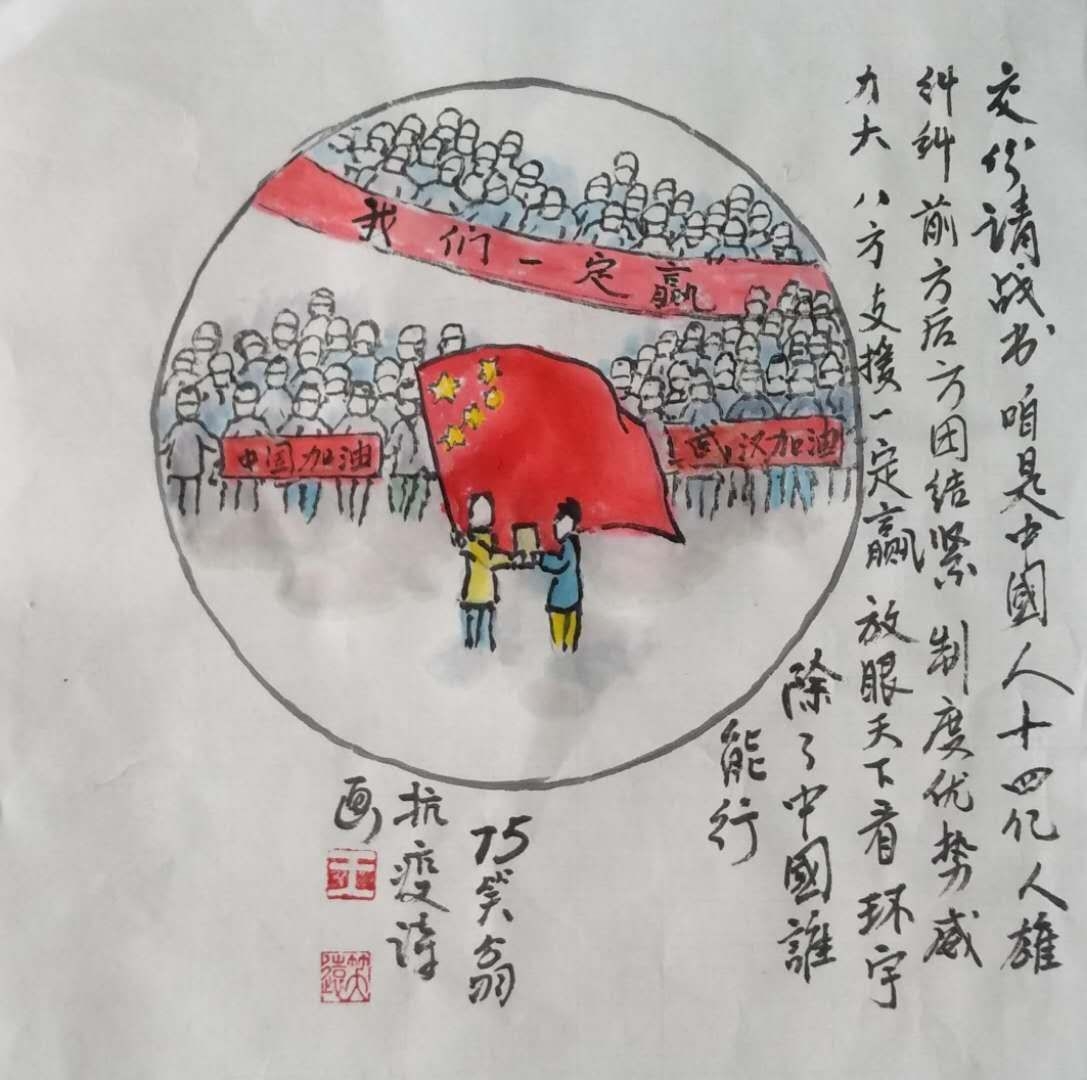 交份请战书咱是中國人十四亿人雄
纠纠前方后方团结紧制度优势威
力大八方支援一定赢放眼天下看环宇
除了中國誰
能行
我们一定赢
中国加油
武汉加油
75笑翁
抗疫诗
画
王